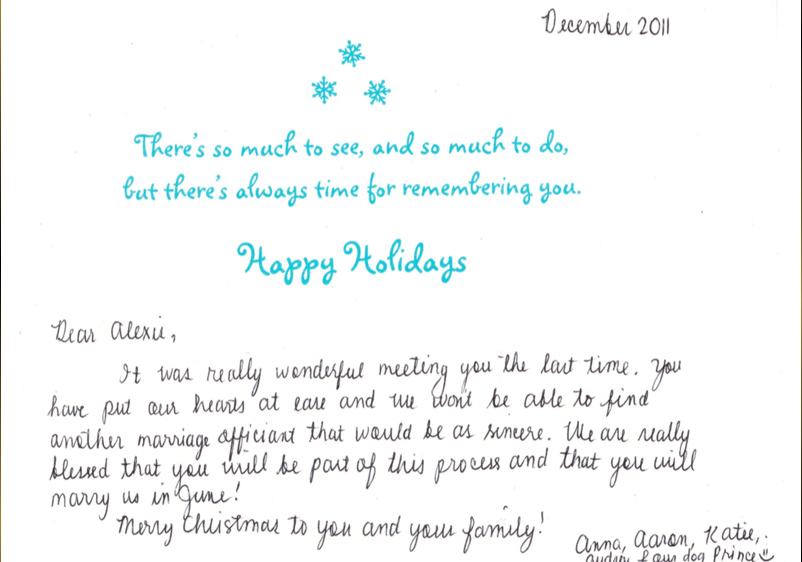 December 2011
There's so much to see, and so much to do,
but there's always time for remembering you.
Happy Holidays
Dear Alexii,
It was really wonderful meeting you the last time. You
have put our hearts at ease and we won't be able to find
another marriage officiant that would be as sincere. We are really
blessed that you will be part of this process and that you will
marry us in June!
Merry Christmas to you and your family!
Anna, Aaron, Katie,
& our dog Prince